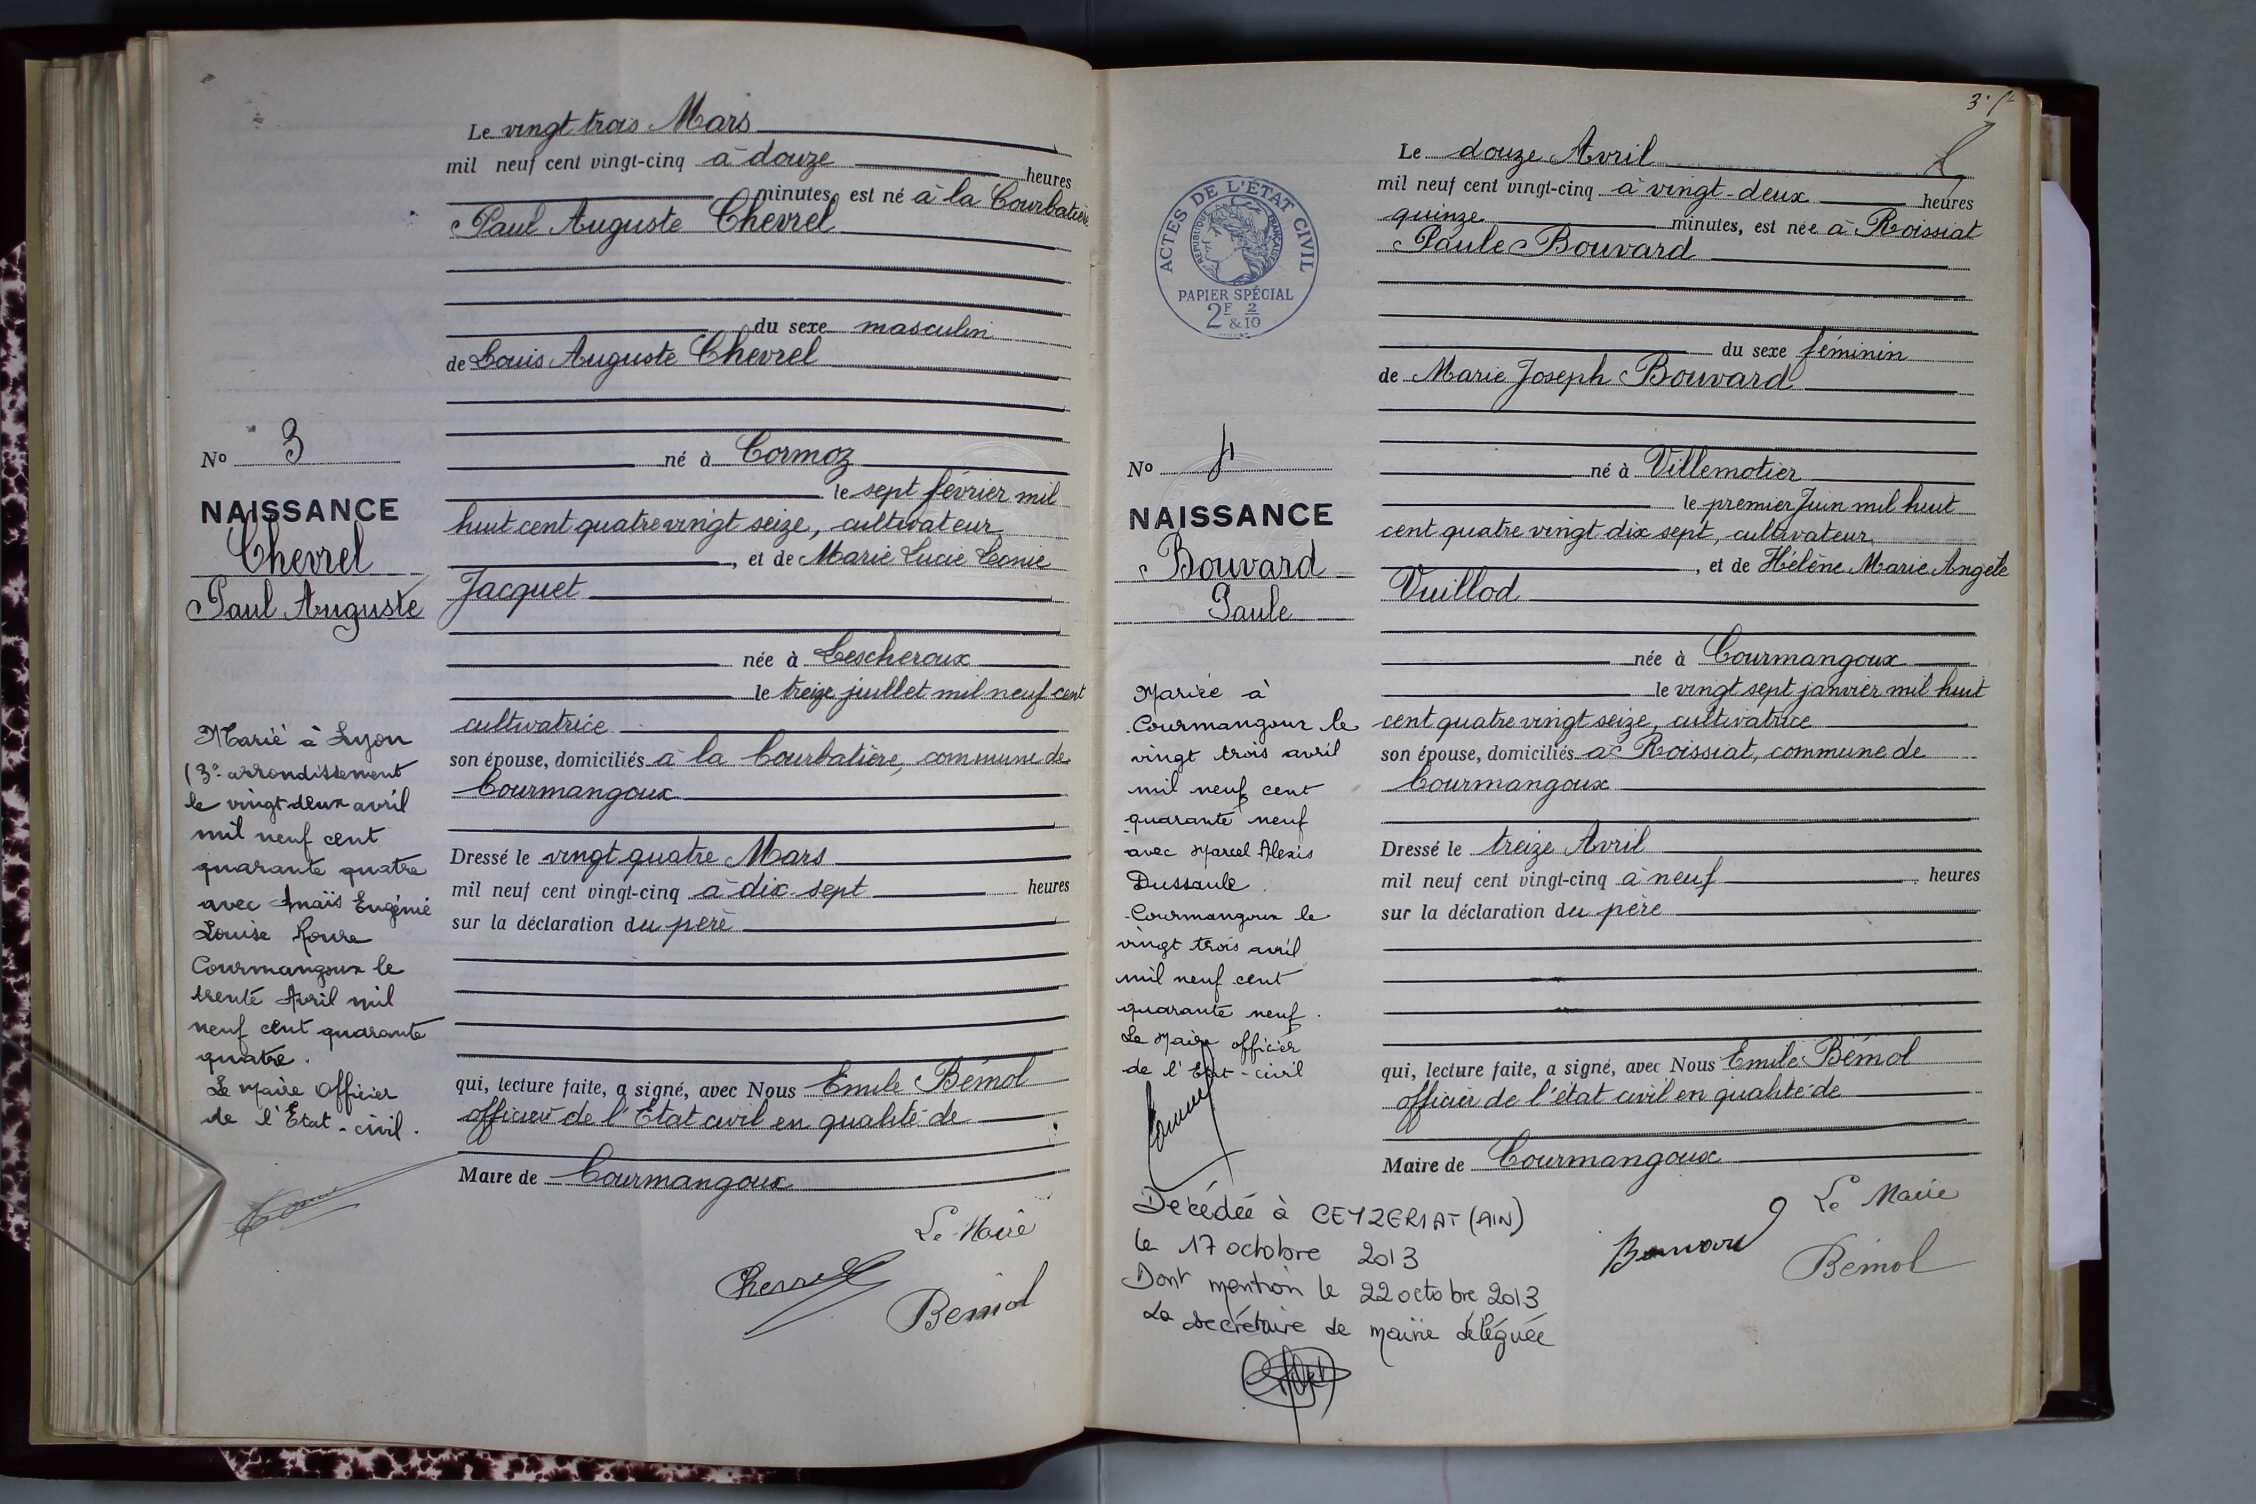 Le vingt trois Mars
mil neuf cent vingt-cinq à douze heures
minutes, est né à la Courbatière
Paul Auguste Chevrel
du sexe masculin
de Louis Auguste Chevrel
né à Cormoz
le sept février mil
huit cent quatre vingt seize, cultivateur
, et de Marie Lucie Léonie
Jacquet
née à Lescheroux
le treize juillet mil neuf cent
cultivatrice
son épouse, domiciliés à la Courbatière, commune de
Courmangoux
Dressé le vingt quatre Mars
mil neuf cent vingt-cinq à dix-sept heures
sur la déclaration du père
qui, lecture faite, a signé, avec Nous Emile Bémol
officier de l'Etat civil en qualité de
Maire de Courmangoux
Le Maire
Chevrel
Bémol
No 3
NAISSANCE
Chevrel
Paul Auguste
Marié à Lyon
(3e arrondissement
le vingt deux avril
mil neuf cent
quarante quatre
avec Anaïs Eugénie
Louise Roure
Courmangoux le
trente Avril mil
neuf cent quarante
quatre.
Le Maire Officier
de l'Etat-civil.
3
Le douze Avril
mil neuf cent vingt-cinq à vingt-deux heures
quinze minutes, est née à Roissiat
Paule Bouvard
du sexe féminin
de Marie Joseph Bouvard
né à Villemotier
le premier Juin mil huit
cent quatre vingt dix sept, cultivateur
, et de Hélène Marie Angèle
Vuillod
née à Courmangoux
le vingt sept janvier mil huit
cent quatre vingt seize, cultivatrice
son épouse, domiciliés à Roissiat, commune de
Courmangoux
Dressé le treize Avril
mil neuf cent vingt-cinq à neuf heures
sur la déclaration du père
qui, lecture faite, a signé, avec Nous Emile Bémol
officier de l'état civil en qualité de
Maire de Courmangoux
Le Maire
Bouvard
Bémol
ACTES DE L'ÉTAT CIVIL
RÉPUBLIQUE FRANÇAISE
PAPIER SPÉCIAL
2F 2
&10
No 4
NAISSANCE
Bouvard
Paule
Mariée à
Courmangoux le
vingt trois avril
mil neuf cent
quarante neuf
avec Marcel Alexis
Dussaule.
Courmangoux le
vingt trois avril
mil neuf cent
quarante neuf.
Le Maire officier
de l'Etat-civil
Décédée à CEYZERIAT (AIN)
le 17 octobre 2013
Dont mention le 22 octobre 2013
La secrétaire de mairie déléguée